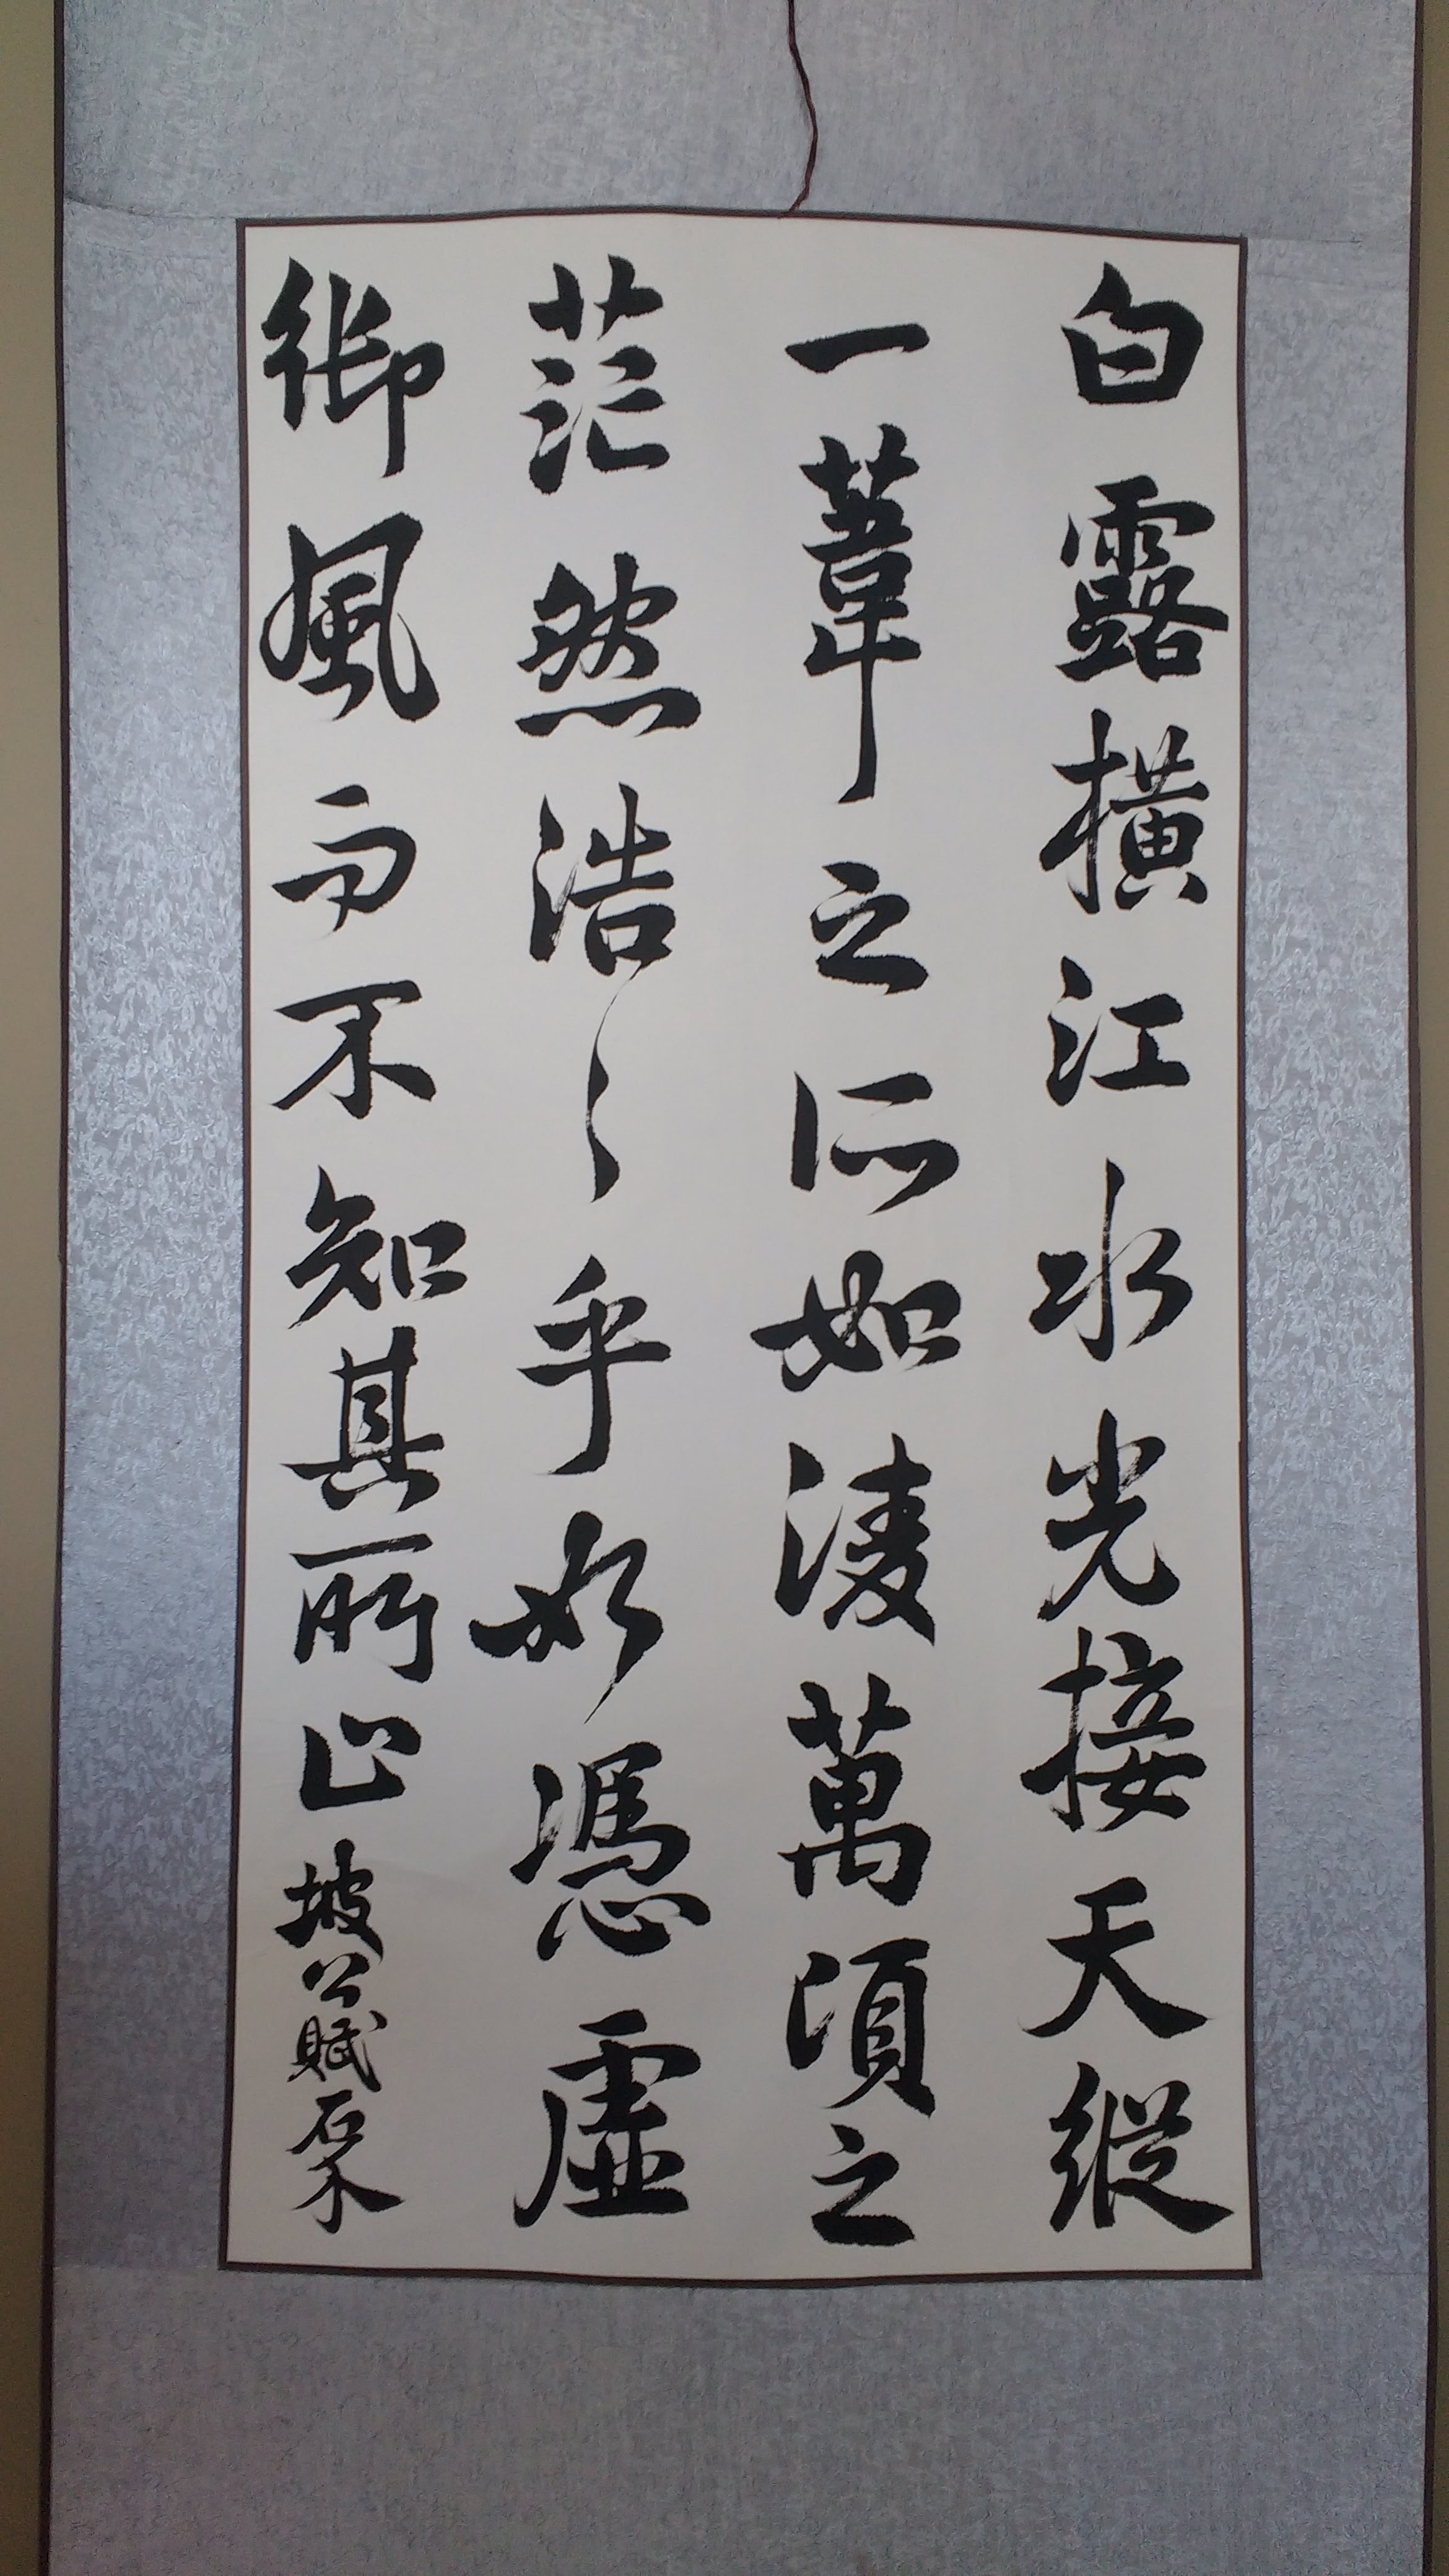 白露橫江水光接天縱
一葦之所如淩萬頃之
茫然浩〻乎如憑虛
御風而不知其所止坡公賦